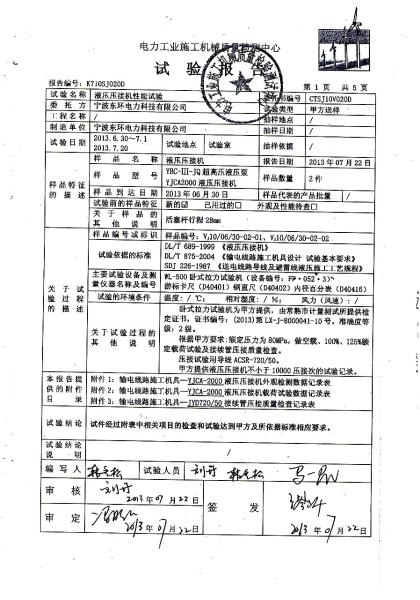 电力工业施工机械质量检测中心
试 验 报 告
报告编号: K710SJ020D 第 1 页 共 5 页
试验名称 液压压接机性能试验 书编号 CTSJ10V020D
委托方 宁波东环电力科技有限公司 试验类型 甲方送样
工程名称 / 抽样地点 /
制造单位 宁波东环电力科技有限公司 抽样日期 /
试验日期 2013.6.30~7.1 2013.7.20 试验地点 试验室 抽样依据 /
样品特征的描述
样品名称 液压压接机 报告日期 2013年07月22日
样品型号 YBC-III-JQ超高压液压泵 YJCA2000液压压接机 样品数量 2件
样品到达日期 2013年06月30日 样品代表的产品批量 /
试验前的样品特征 新的☑ 已用过的□ 外观及性能待查□
关于样品的其他说明 活塞杆行程28mm
关于试验过程的描述
样品编号或标识 样品编号: V;10/06/30-02-01、V;10/06/30-02-02
试验依据的标准 DL/T 689-1999 《液压压接机》
DL/T 875-2004 《输电线路施工机具设计 试验基本要求》
SDJ 226-1987 《送电线路导线及避雷线液压施工工艺规程》
主要试验设备及测量仪器名称及编号 WL-500卧式拉力试验机（设备编号: FP·052·3）、
游标卡尺（D40401）钢直尺（D40402）内径百分表（D40416）
试验的环境条件 温度: / ℃; 相对湿度: / %; 风力（风速）: /
关于试验过程的其他说明 卧式拉力试验机为甲方提供，由常熟市计量测试所提供检定证书，证书编号:（2013）第LX-J-8000041-10号，准确度等级: 2级。
根据甲方要求:额定压力为80MPa，做空载、100%、125%额定载荷试验及接续管压接质量检查。
压接试验用导线ACSR-720/50。
甲方提供液压压接机不小于10000压接次的试验记录。
本报告提供的附件目录
附件1: 输电线路施工机具—YJCA-2000液压压接机外观检测数据记录表
附件2: 输电线路施工机具—YJCA-2000液压压接机载荷试验数据记录表
附件3: 输电线路施工机具—JYD720/50接续管压接质量检查记录表
试验结论 试件经过附表中相关项目的检查和试验达到甲方及所依据标准相应要求。
试验结论说明 /
编写人 试验人员 刘开
审核 刘开 2013年07月22日 签发
审定 2013年07月22日 2013年07月22日